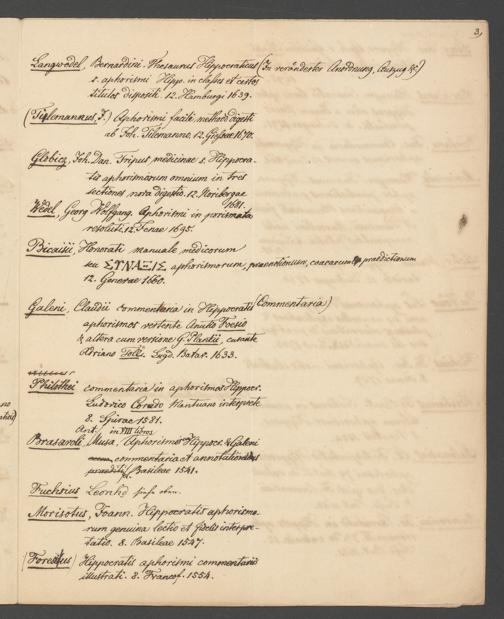 3
Langwedel Bernardini. Thesaurus Hippocraticus (In veränderter Anordnung, Auszug &c)
s. aphorismi Hippo. in classes et certos
titulos dispositi. 12. Hamburgi 1639.
(Tilemannus, J.) Aphorismi facili methodo digesti
ab Joh. Tilemanno, 12. Giessae 1670.
Globicz, Joh. Dan. Tripus medicinae s. Hippocra-
tis aphorismorum omnium in tres
sectiones nova digestio. 12. Noribergae
1681.
Wedel, Georg Wolffgang. Aphorismi in porismata
resoluti. 12. Jenae 1695.
Bicaisii, Honorati manuale medicorum
seu ΣΥΝΑΞΙΣ aphorismorum, praenotionum, coacarum praedictionum
12. Genevae 1660.
Galeni, Claudii commentaria in Hippocratis (Commentaria)
aphorismos vertente Anutio Foesio
& altera cum versione G. Plantii, curante
Adriano Lugd. Batav. 1633.
Philothei commentaria in aphorismos Hippocr.
Ludovico Corado Mantuano interprete
8. Spirae 1581.
Ant. in VIII libros
Brasavoli, Musa. Aphorismos Hippocr. & Galeni
commentaria et annotationes
Basileae 1541.
Fuchsius Leonhd siehe oben.
Morisotus, Joann. Hippocratis aphorismo-
rum genuina lectio et fidelis interpre-
tatio. 8. Basileae 1547.
(Forestus) Hippocratis aphorismi commentariis
illustrati. 8. Francof. 1554.